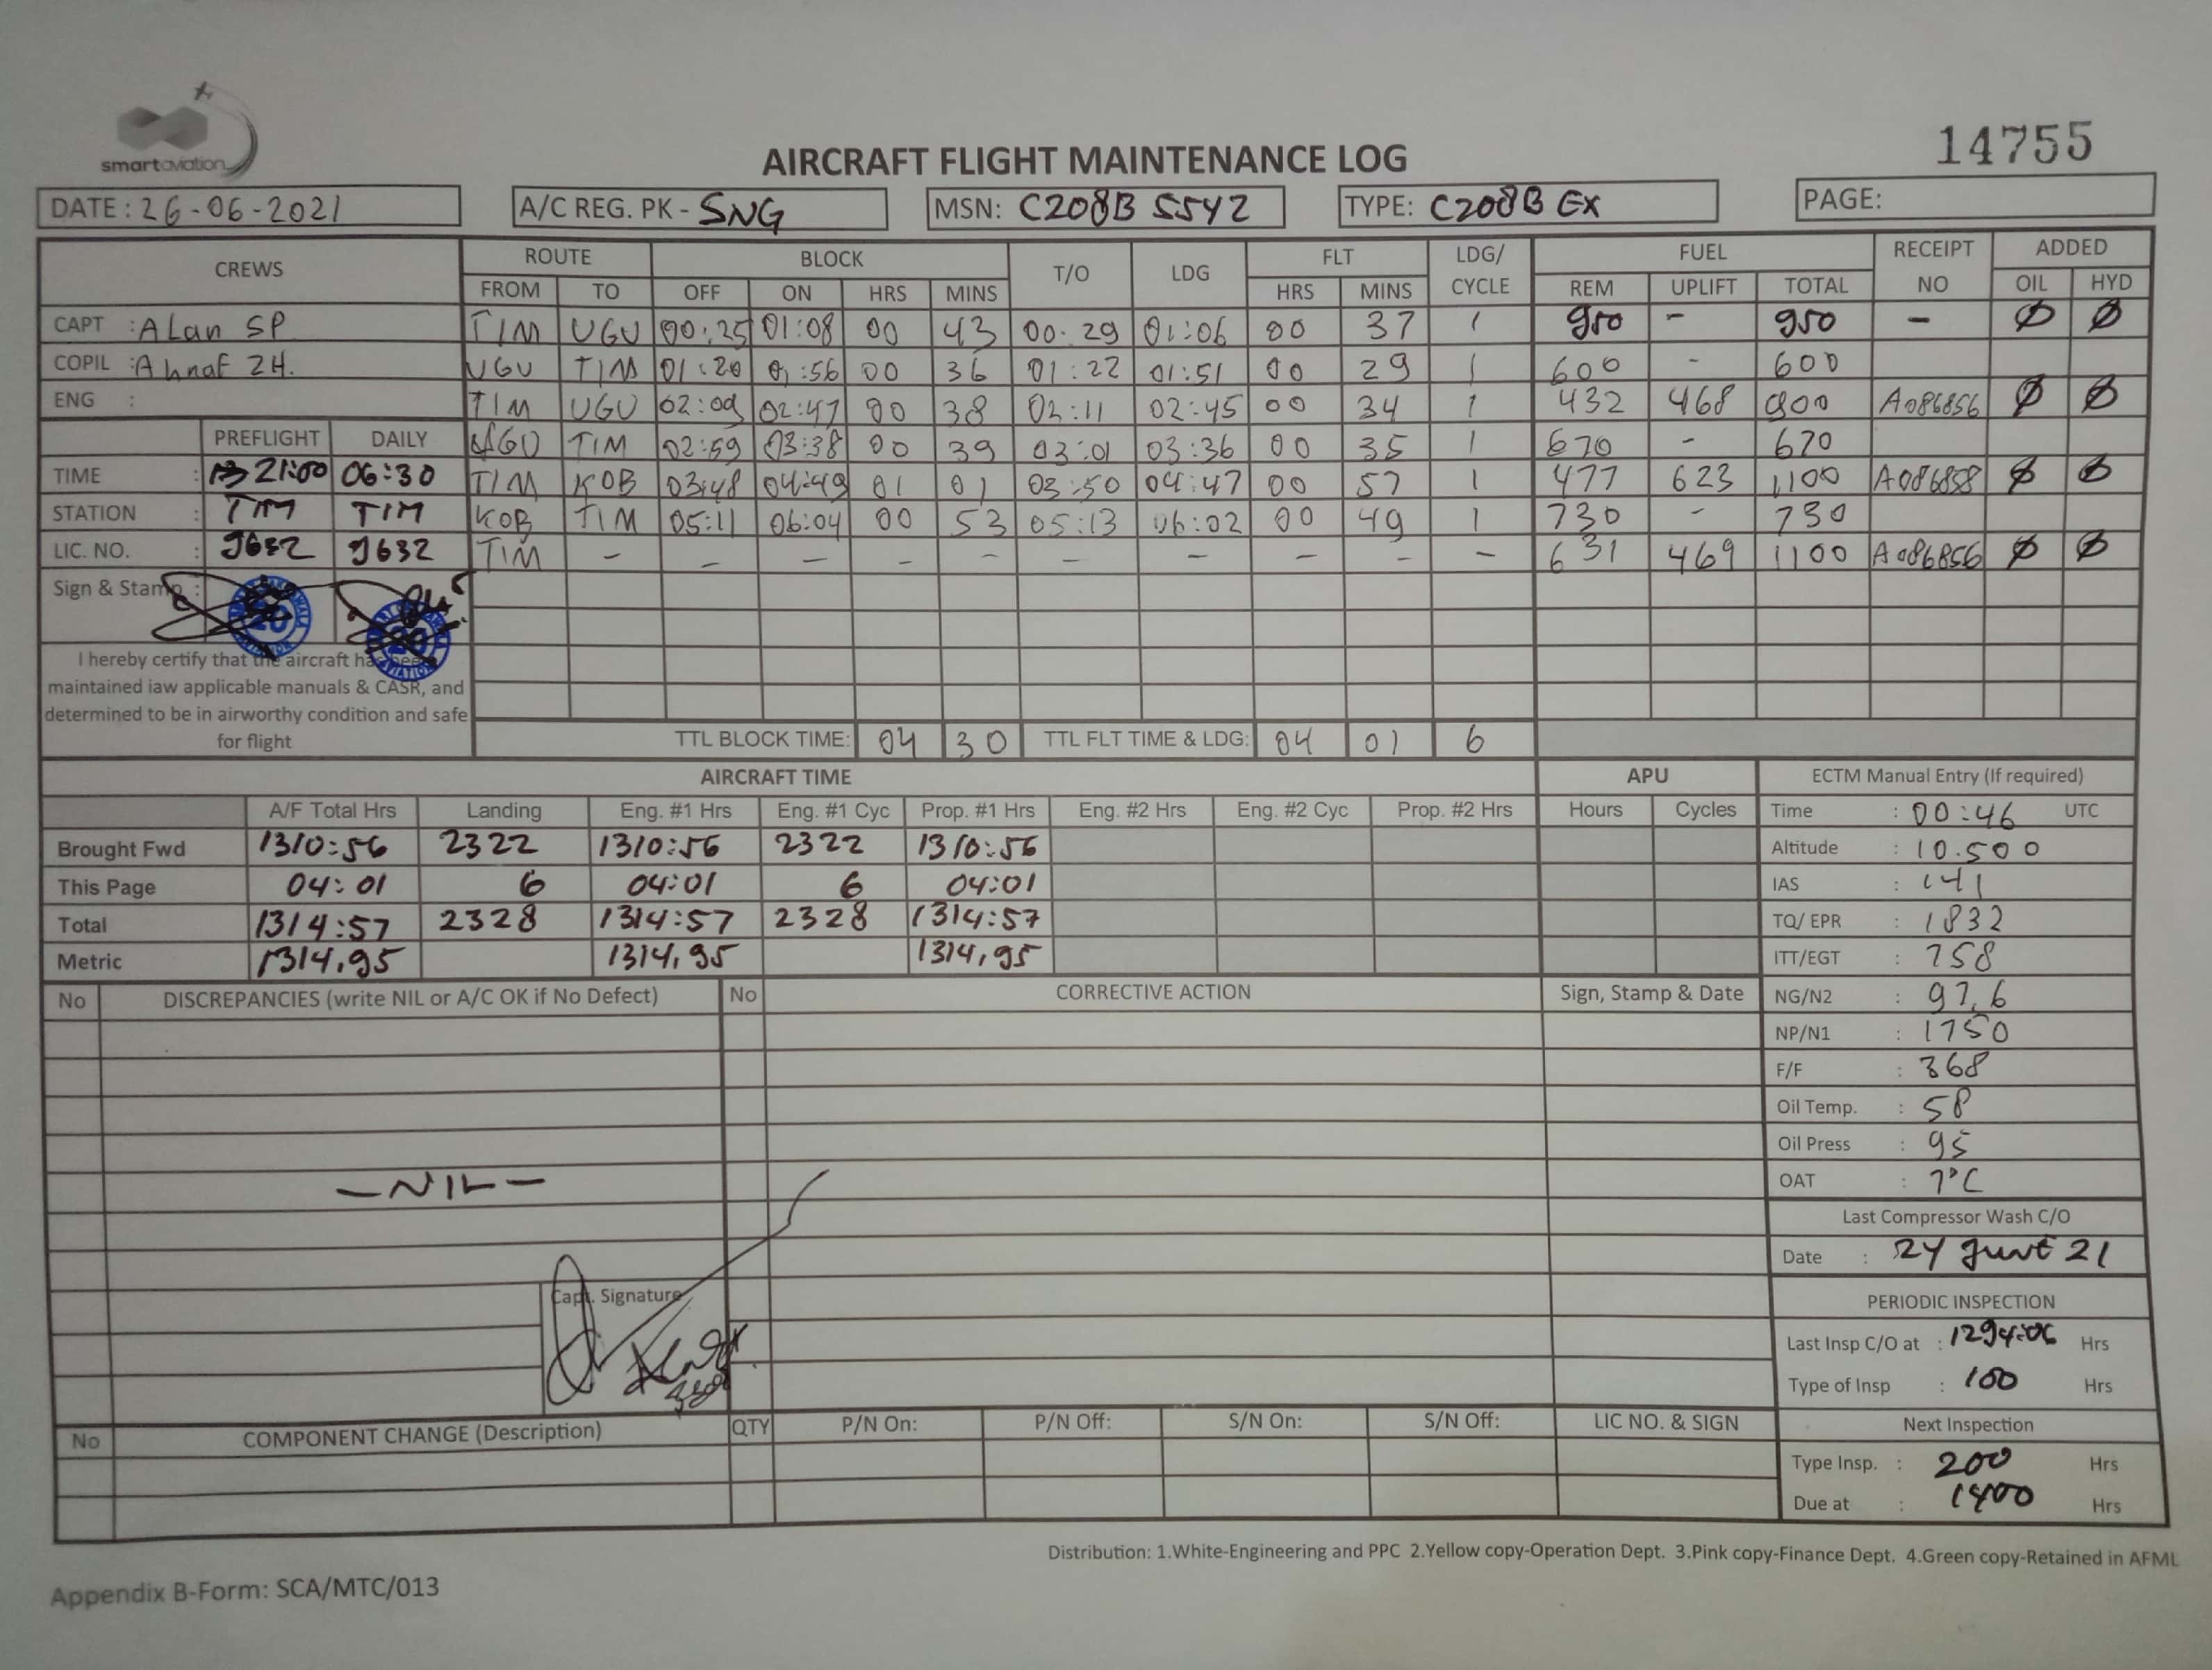 smartaviation
14755
AIRCRAFT FLIGHT MAINTENANCE LOG
DATE : 26-06-2021 A/C REG. PK - SNG MSN: C208B 5542 TYPE: C208B EX PAGE:
CREWS ROUTE BLOCK T/O LDG FLT LDG/ CYCLE FUEL RECEIPT NO ADDED
FROM TO OFF ON HRS MINS HRS MINS REM UPLIFT TOTAL OIL HYD
CAPT : ALan SP TIM UGU 00:25 01:08 00 43 00:29 01:06 00 37 1 950 - 950 - Ø Ø
COPIL : Ahnaf ZH. UGU TIM 01:20 01:56 00 36 01:22 01:51 00 29 1 600 - 600
ENG : TIM UGU 02:09 02:47 00 38 02:11 02:45 00 34 1 432 468 900 A086856 Ø Ø
PREFLIGHT DAILY UGU TIM 02:59 03:38 00 39 03:01 03:36 00 35 1 670 - 670
TIME : 21:00 06:30 TIM KOB 03:48 04:49 01 01 03:50 04:47 00 57 1 477 623 1,100 A086858 Ø Ø
STATION : TIM TIM KOB TIM 05:11 06:04 00 53 05:13 06:02 00 49 1 730 - 730
LIC. NO. : 9632 9632 TIM - - - - - - - - - - 631 469 1100 A086856 Ø Ø
Sign & Stamp :
I hereby certify that the aircraft has been
maintained iaw applicable manuals & CASR, and
determined to be in airworthy condition and safe
for flight
TTL BLOCK TIME: 04 30 TTL FLT TIME & LDG: 04 01 6
AIRCRAFT TIME APU ECTM Manual Entry (If required)
A/F Total Hrs Landing Eng. #1 Hrs Eng. #1 Cyc Prop. #1 Hrs Eng. #2 Hrs Eng. #2 Cyc Prop. #2 Hrs Hours Cycles Time : 00:46 UTC
Brought Fwd 1310:56 2322 1310:56 2322 1310:56 Altitude : 10.500
This Page 04:01 6 04:01 6 04:01 IAS : 141
Total 1314:57 2328 1314:57 2328 1314:57 TQ/ EPR : 1832
Metric 1314,95 1314,95 1314,95 ITT/EGT : 758
No DISCREPANCIES (write NIL or A/C OK if No Defect) No CORRECTIVE ACTION Sign, Stamp & Date NG/N2 : 97,6
NP/N1 : 1750
F/F : 368
Oil Temp. : 58
Oil Press : 95
- NIL - OAT : 7°C
Last Compressor Wash C/O
Date : 24 June 21
Capt. Signature
PERIODIC INSPECTION
Last Insp C/O at : 1294:06 Hrs
Type of Insp : 100 Hrs
No COMPONENT CHANGE (Description) QTY P/N On: P/N Off: S/N On: S/N Off: LIC NO. & SIGN Next Inspection
Type Insp. : 200 Hrs
Due at : 1400 Hrs
Distribution: 1.White-Engineering and PPC 2.Yellow copy-Operation Dept. 3.Pink copy-Finance Dept. 4.Green copy-Retained in AFML
Appendix B-Form: SCA/MTC/013